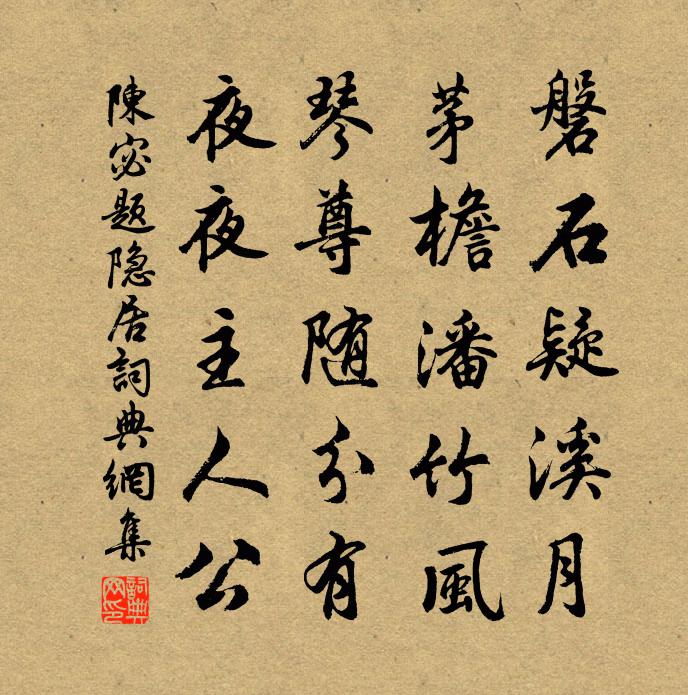 磐石疑溪月
茅檐潘竹風
琴尊随分有
夜夜主人公
陳宓题隐居詞典網集
詞典网印